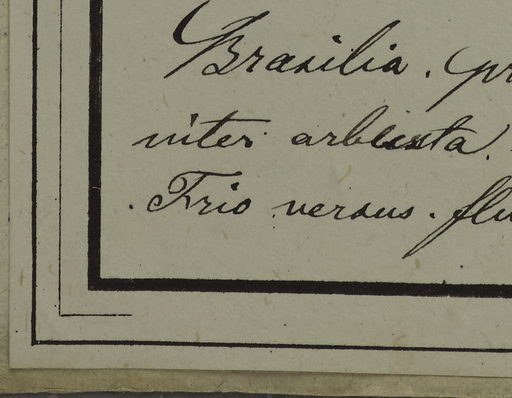 Brasilia. pr
niter arbusta.
. Frio versus. flu